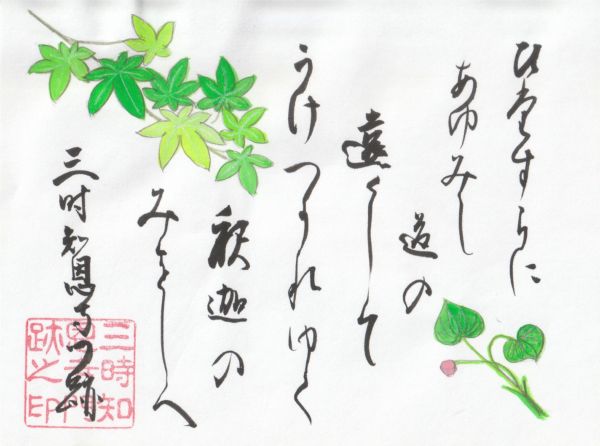 ひたすらに
あゆみし
道の
遠くして
うけつかれゆく
釈迦の
みをしへ
三時知恩寺門跡
三時知
恩寺門
跡之印